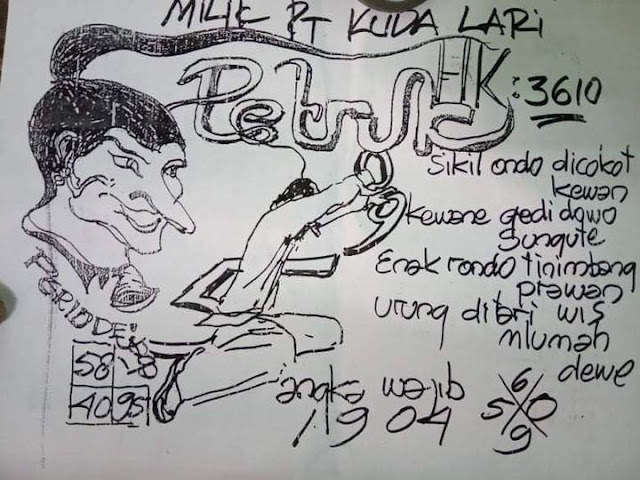 MILIK PT KUDA LARI
Petruk HK: 3610
Sikil ondo dicokot
kewan
kewane gedi dowo
Sungute
Enak rondo tinimbang
prawan
urung ditari wis
mlumah
dewe
PERIODE:
58 78
40 95
angka wajib
1904
6
5 0
9